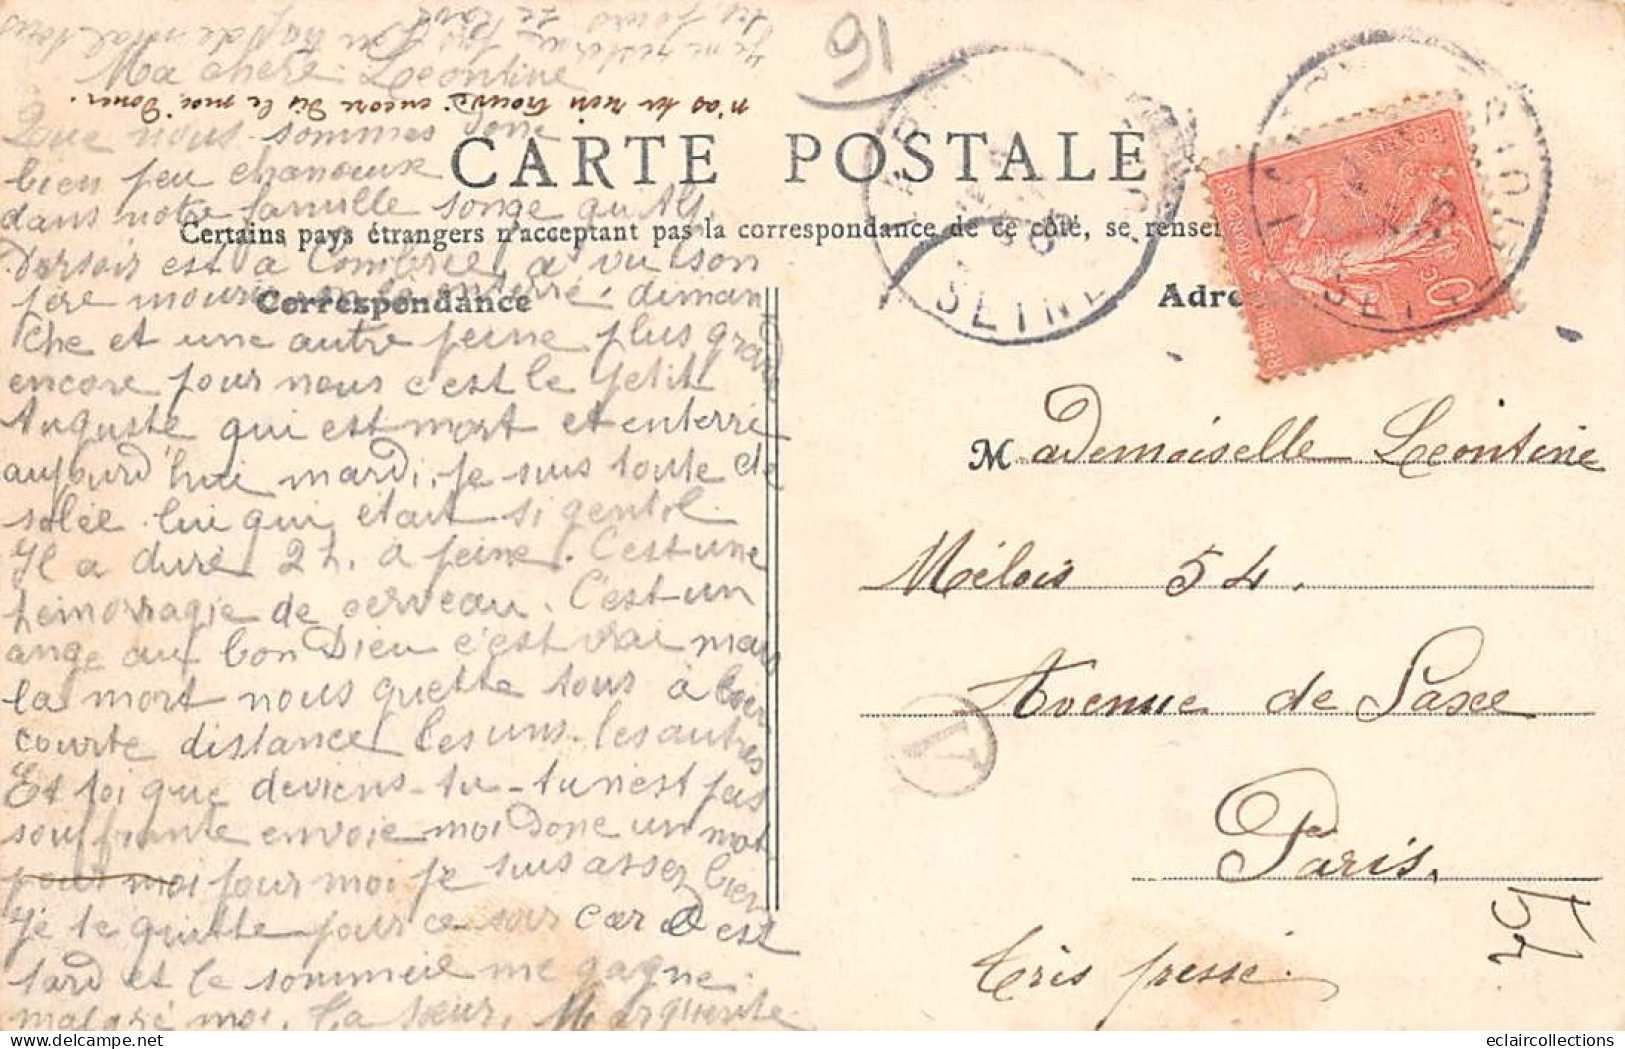 Ma chère Leontine
n'as tu rien trouvé encore dis le moi donc.
Que nous sommes donc
CARTE POSTALE
bien peu chanceux
dans notre famille songe qu'Alf.
Certains pays étrangers n'acceptent pas la correspondance de ce côté, se rensei
est à Combrée, a vu son
père mourir enterré, diman
Correspondance
Adre
che et une autre peine plus grande
encore pour nous c'est le petit
Auguste qui est mort et enterré
aujourd'hui mardi, je suis toute dé
solée lui qui était si gentil.
Il a duré 2 h. à peine. C'est une
hémorragie de cerveau. C'est un
ange au bon Dieu c'est vrai mais
la mort nous guette tous à bien
courte distance les uns les autres
Et toi que deviens-tu-tu n'est pas
souffrante envoie moi donc un mot
pour moi pour moi je suis assez bien
Je te quitte pour ce soir car il est
tard et le sommeil me gagne
malgré moi. Ta sœur, Marguerite
Mademoiselle Leontine
Mélois 54.
Avenue de Saxe
Paris.
très pressé.
91
SEINE
10
eclaircollections